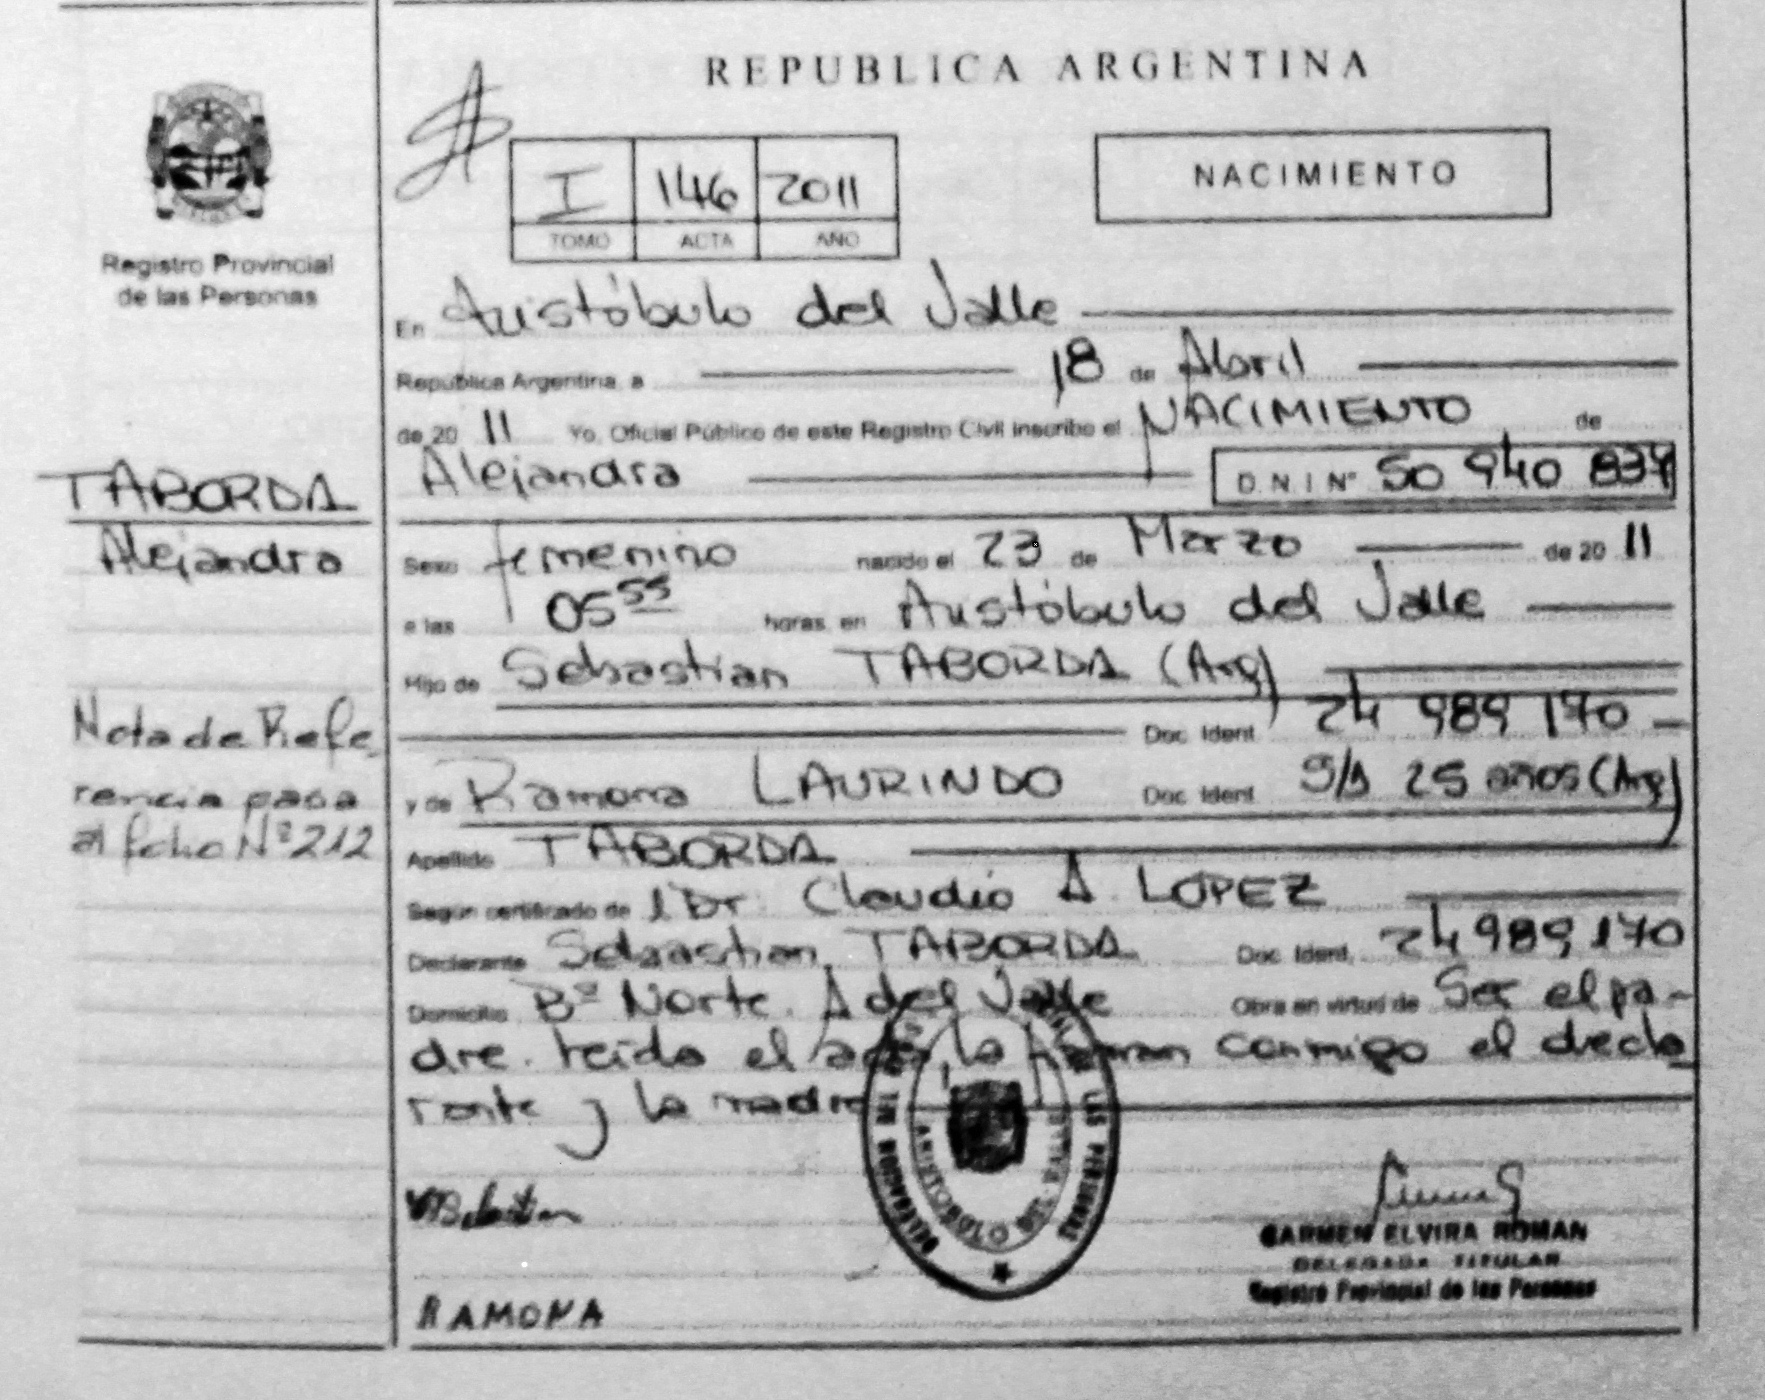 REPUBLICA ARGENTINA
Registro Provincial
de las Personas
I 146 2011
TOMO ACTA AÑO
NACIMIENTO
En Aristóbulo del Valle
República Argentina, a 18 de Abril
de 20 11 Yo, Oficial Público de este Registro Civil inscribo el NACIMIENTO de
Alejandra D.N.I Nº 50 940 837
TABORDA
Alejandra
Sexo femenino nacido el 23 de Marzo de 20 11
a las 05 55 horas, en Aristóbulo del Valle
Hijo de Sebastian TABORDA (Arg)
Doc. Ident. 24 989 170
y de Ramona LAURINDO Doc. Ident. S/D 25 años (Arg)
Apellido TABORDA
Según certificado de l Dr. Claudio A. LOPEZ
Declarante Sebastian TABORDA Doc. Ident. 24 989 170
Domicilio Bº Norte. A del Valle Obra en virtud de Ser el pa-
dre. leída el acta la firman conmigo el decla
rante y la madre
Nota de Refe
rencia pasa
al folio Nº 212
DELEGACION
LAS PERSONAS
ARISTOBULO DEL VALLE
Sebastian
RAMONA
CARMEN ELVIRA ROMAN
DELEGADA TITULAR
Registro Provincial de las Personas